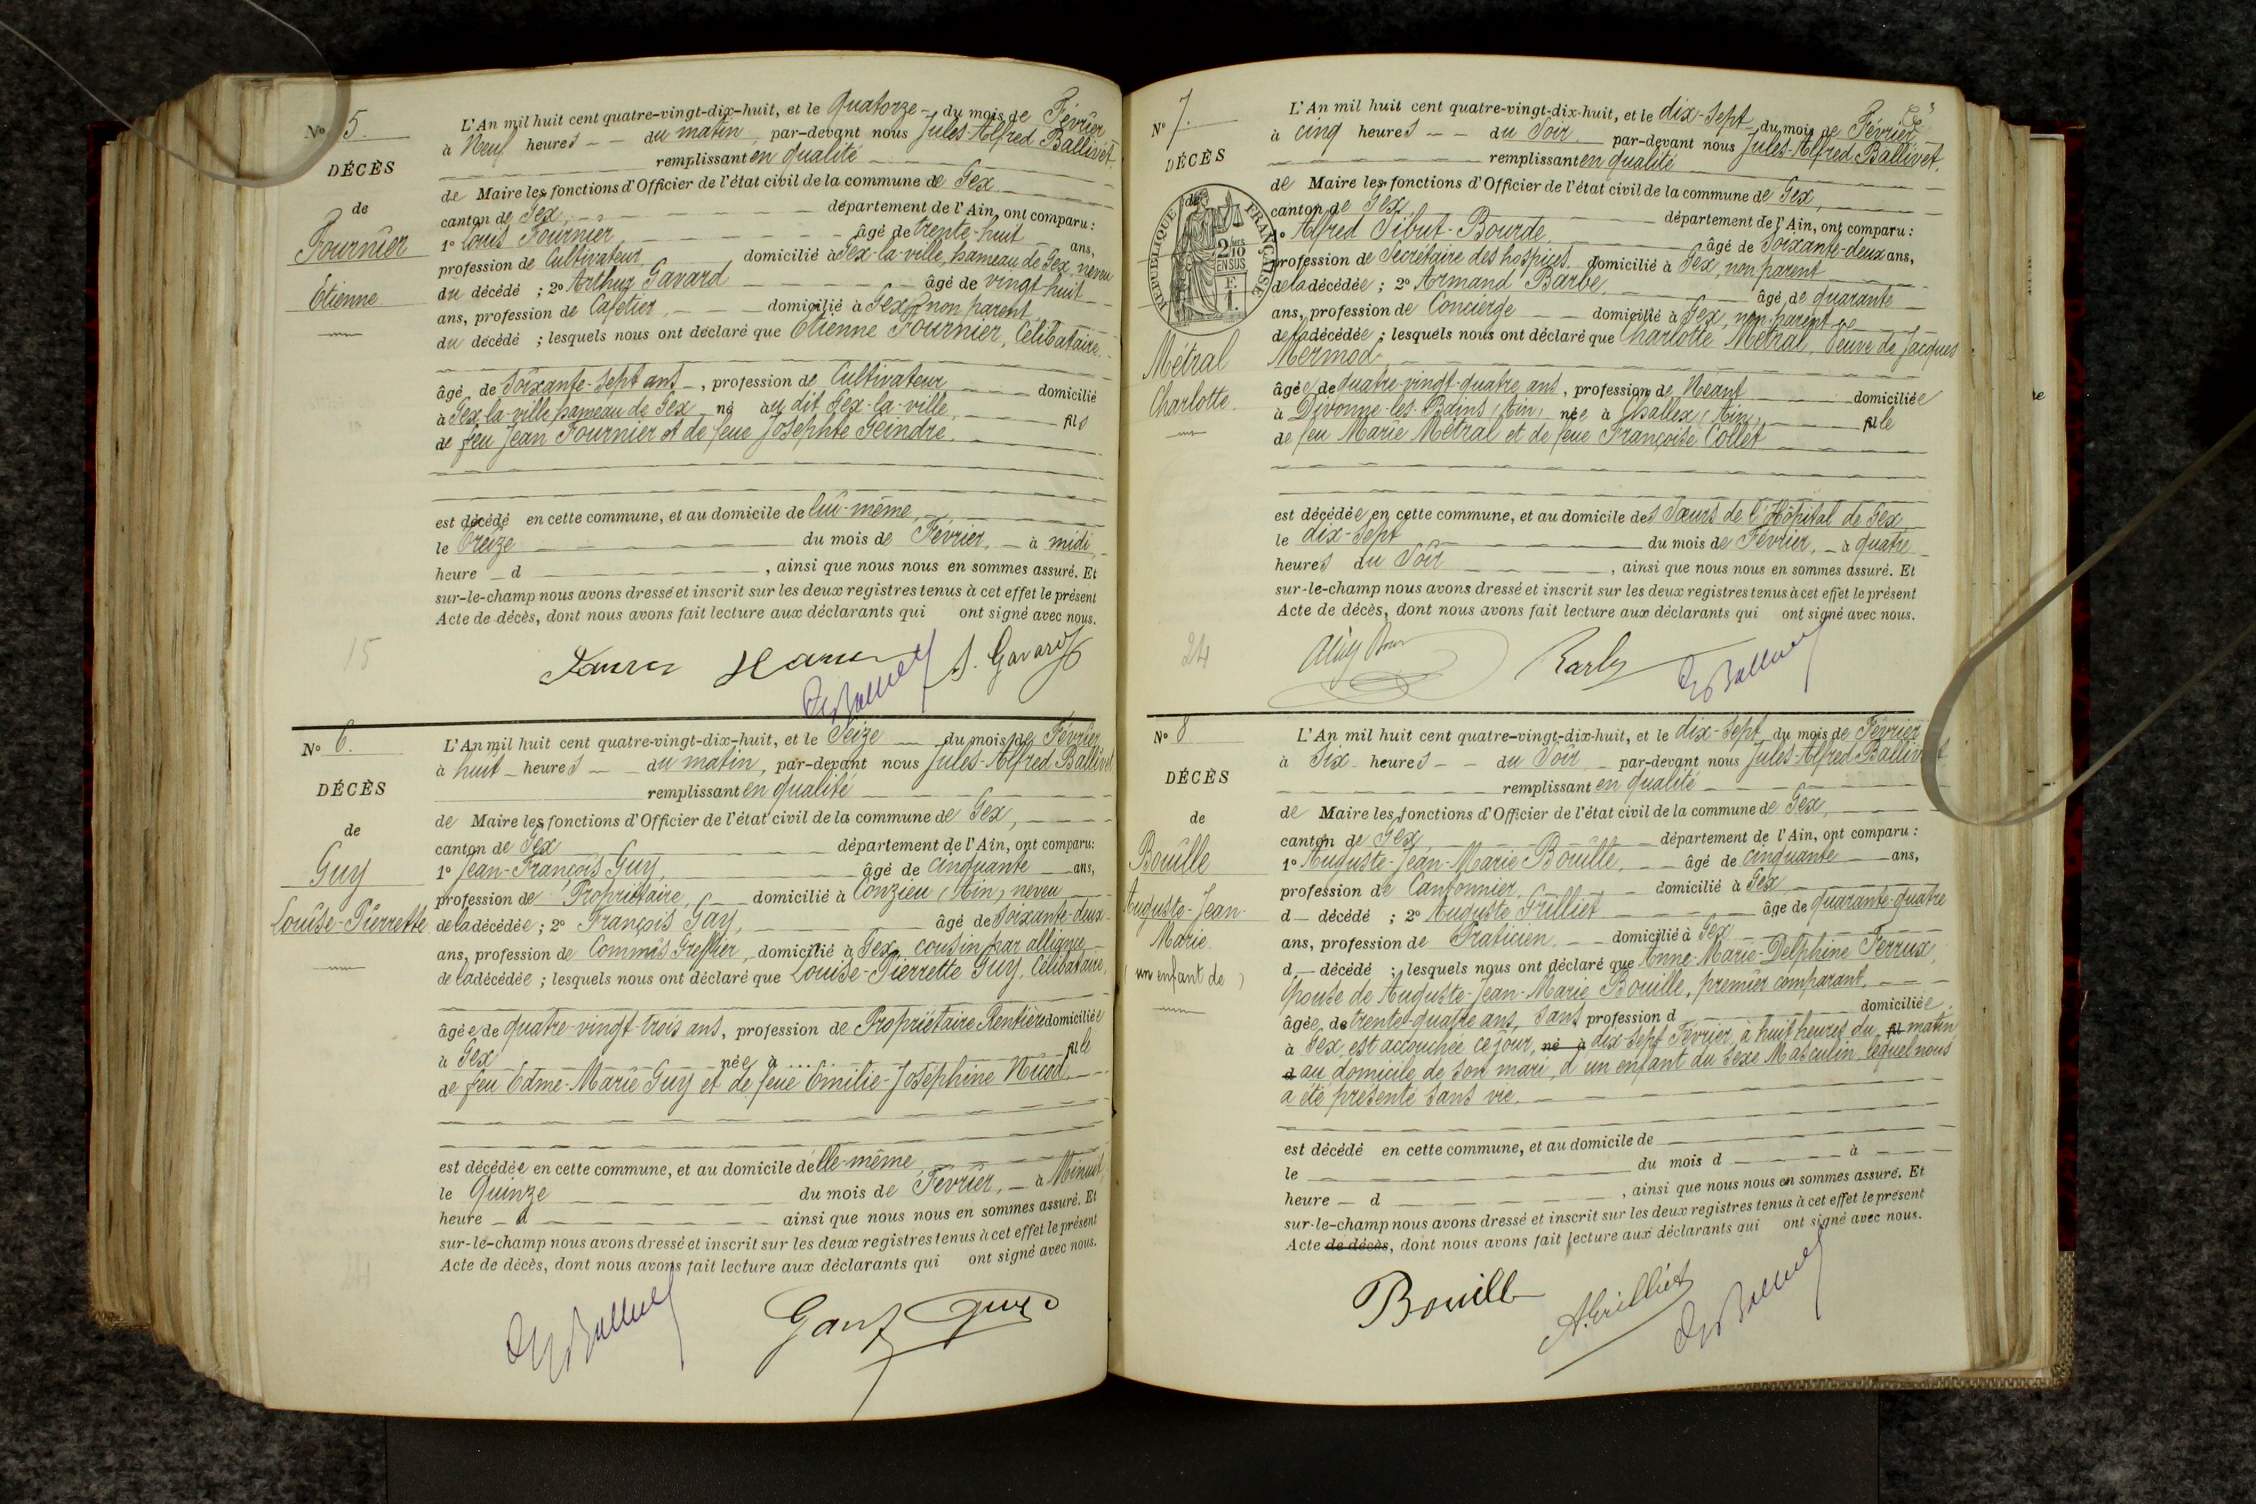 N° 5.
DÉCÈS
de
Fournier
Etienne
L'An mil huit cent quatre-vingt-dix-huit, et le Quatorze du mois de Février
à Neuf heures du matin, par-devant nous Jules-Alfred Ballivet.
remplissant en qualité
de Maire les fonctions d'Officier de l'état civil de la commune de Gex
canton de Gex, département de l'Ain, ont comparu :
1° Louis Fournier âgé de trente-huit ans,
profession de Cultivateur domicilié à Gex-la-ville, hameau de Gex, neveu
du décédé ; 2° Arthur Gavard âgé de vingt huit
ans, profession de Cafetier, domicilié à Gex, non parent
du décédé ; lesquels nous ont déclaré que Etienne Fournier, Célibataire.
âgé de Soixante-Sept ans, profession de Cultivateur domicilié
à Gex-la-ville hameau de Gex né au dit Gex-la-ville, fils
de feu Jean Fournier et de feue Josephte Geindre.
est décédé en cette commune, et au domicile de lui-même,
le Treize du mois de Février, à midi,
heure d , ainsi que nous nous en sommes assuré. Et
sur-le-champ nous avons dressé et inscrit sur les deux registres tenus à cet effet le présent
Acte de décès, dont nous avons fait lecture aux déclarants qui ont signé avec nous.
15
A. Gavard
N° 6.
DÉCÈS
de
Guy
Louise-Pierrette
L'An mil huit cent quatre-vingt-dix-huit, et le Seize du mois de Février
à huit heures du matin, par-devant nous Jules-Alfred Ballivet
remplissant en qualité
de Maire les fonctions d'Officier de l'état civil de la commune de Gex,
canton de Gex département de l'Ain, ont comparu:
1° Jean-François Guy, âgé de cinquante ans,
profession de Propriétaire, domicilié à Conzieu (Ain) neveu
de la décédée ; 2° François Gay, âgé de Soixante-deux
ans, profession de Commis Greffier, domicilié à Gex, cousin par alliance
de la décédée ; lesquels nous ont déclaré que Louise-Pierrette Guy, Célibataire,
âgée de quatre-vingt-trois ans, profession de Propriétaire Rentière domiciliée
à Gex née à ..... fille
de feu Edme-Marie Guy et de feue Emilie-Joséphine Nicod.
est décédée en cette commune, et au domicile d'elle-même
le Quinze du mois de Février, à Minuit,
heure d ainsi que nous nous en sommes assuré. Et
sur-le-champ nous avons dressé et inscrit sur les deux registres tenus à cet effet le présent
Acte de décès, dont nous avons fait lecture aux déclarants qui ont signé avec nous.
N° 7.
DÉCÈS
de
RÉPUBLIQUE FRANÇAISE
2/10
EN SUS
F.
1.
Métral
Charlotte.
L'An mil huit cent quatre-vingt-dix-huit, et le dix-Sept du mois de Février
à cinq heures du Soir par-devant nous Jules-Alfred Ballivet,
remplissant en qualité
de Maire les fonctions d'Officier de l'état civil de la commune de Gex,
canton de Gex, département de l'Ain, ont comparu :
1° Alfred Sibut-Bourde, âgé de Soixante-deux ans,
profession de Secrétaire des hospices domicilié à Gex, non parent
de la décédée ; 2° Armand Barbe, âgé de quarante
ans, profession de Concierge domicilié à Gex, non parent
de la décédée ; lesquels nous ont déclaré que Charlotte Métral, Veuve de Jacques
Mermod
âgée de quatre-vingt-quatre ans, profession de Néant domiciliée
à Divonne-les-Bains (Ain) née à Challex (Ain), fille
de feu Marie Métral et de feue Françoise Collet
est décédée en cette commune, et au domicile des Sœurs de l'Hôpital de Gex
le dix-Sept du mois de Février, à quatre
heures du Soir , ainsi que nous nous en sommes assuré. Et
sur-le-champ nous avons dressé et inscrit sur les deux registres tenus à cet effet le présent
Acte de décès, dont nous avons fait lecture aux déclarants qui ont signé avec nous.
24
N° 8
DÉCÈS
de
Bouille
Auguste-Jean-
Marie.
(un enfant de)
L'An mil huit cent quatre-vingt-dix-huit, et le dix-Sept du mois de Février
à Six heures du Soir par-devant nous Jules-Alfred Ballivet
remplissant en qualité
de Maire les fonctions d'Officier de l'état civil de la commune de Gex,
canton de Gex département de l'Ain, ont comparu :
1° Auguste-Jean-Marie Bouille, âgé de cinquante ans,
profession de Cantonnier, domicilié à Gex
d décédé ; 2° Auguste Grilliet âgé de quarante-quatre
ans, profession de Praticien domicilié à Gex
d décédé ; lesquels nous ont déclaré que Anne-Marie-Delphine Ferrux,
épouse de Auguste-Jean-Marie Bouille, premier comparant,
âgée de trente-quatre ans, Sans profession d domiciliée
à Gex, est accouchée ce jour, né à dix-Sept Février, à huit heures du fil matin
d au domicile de son mari, d'un enfant du Sexe Masculin lequel nous
a été présenté Sans vie.
est décédé en cette commune, et au domicile de
le du mois d à
heure d , ainsi que nous nous en sommes assuré. Et
sur-le-champ nous avons dressé et inscrit sur les deux registres tenus à cet effet le présent
Acte de décès, dont nous avons fait lecture aux déclarants qui ont signé avec nous.
Bouille
A. Grilliet